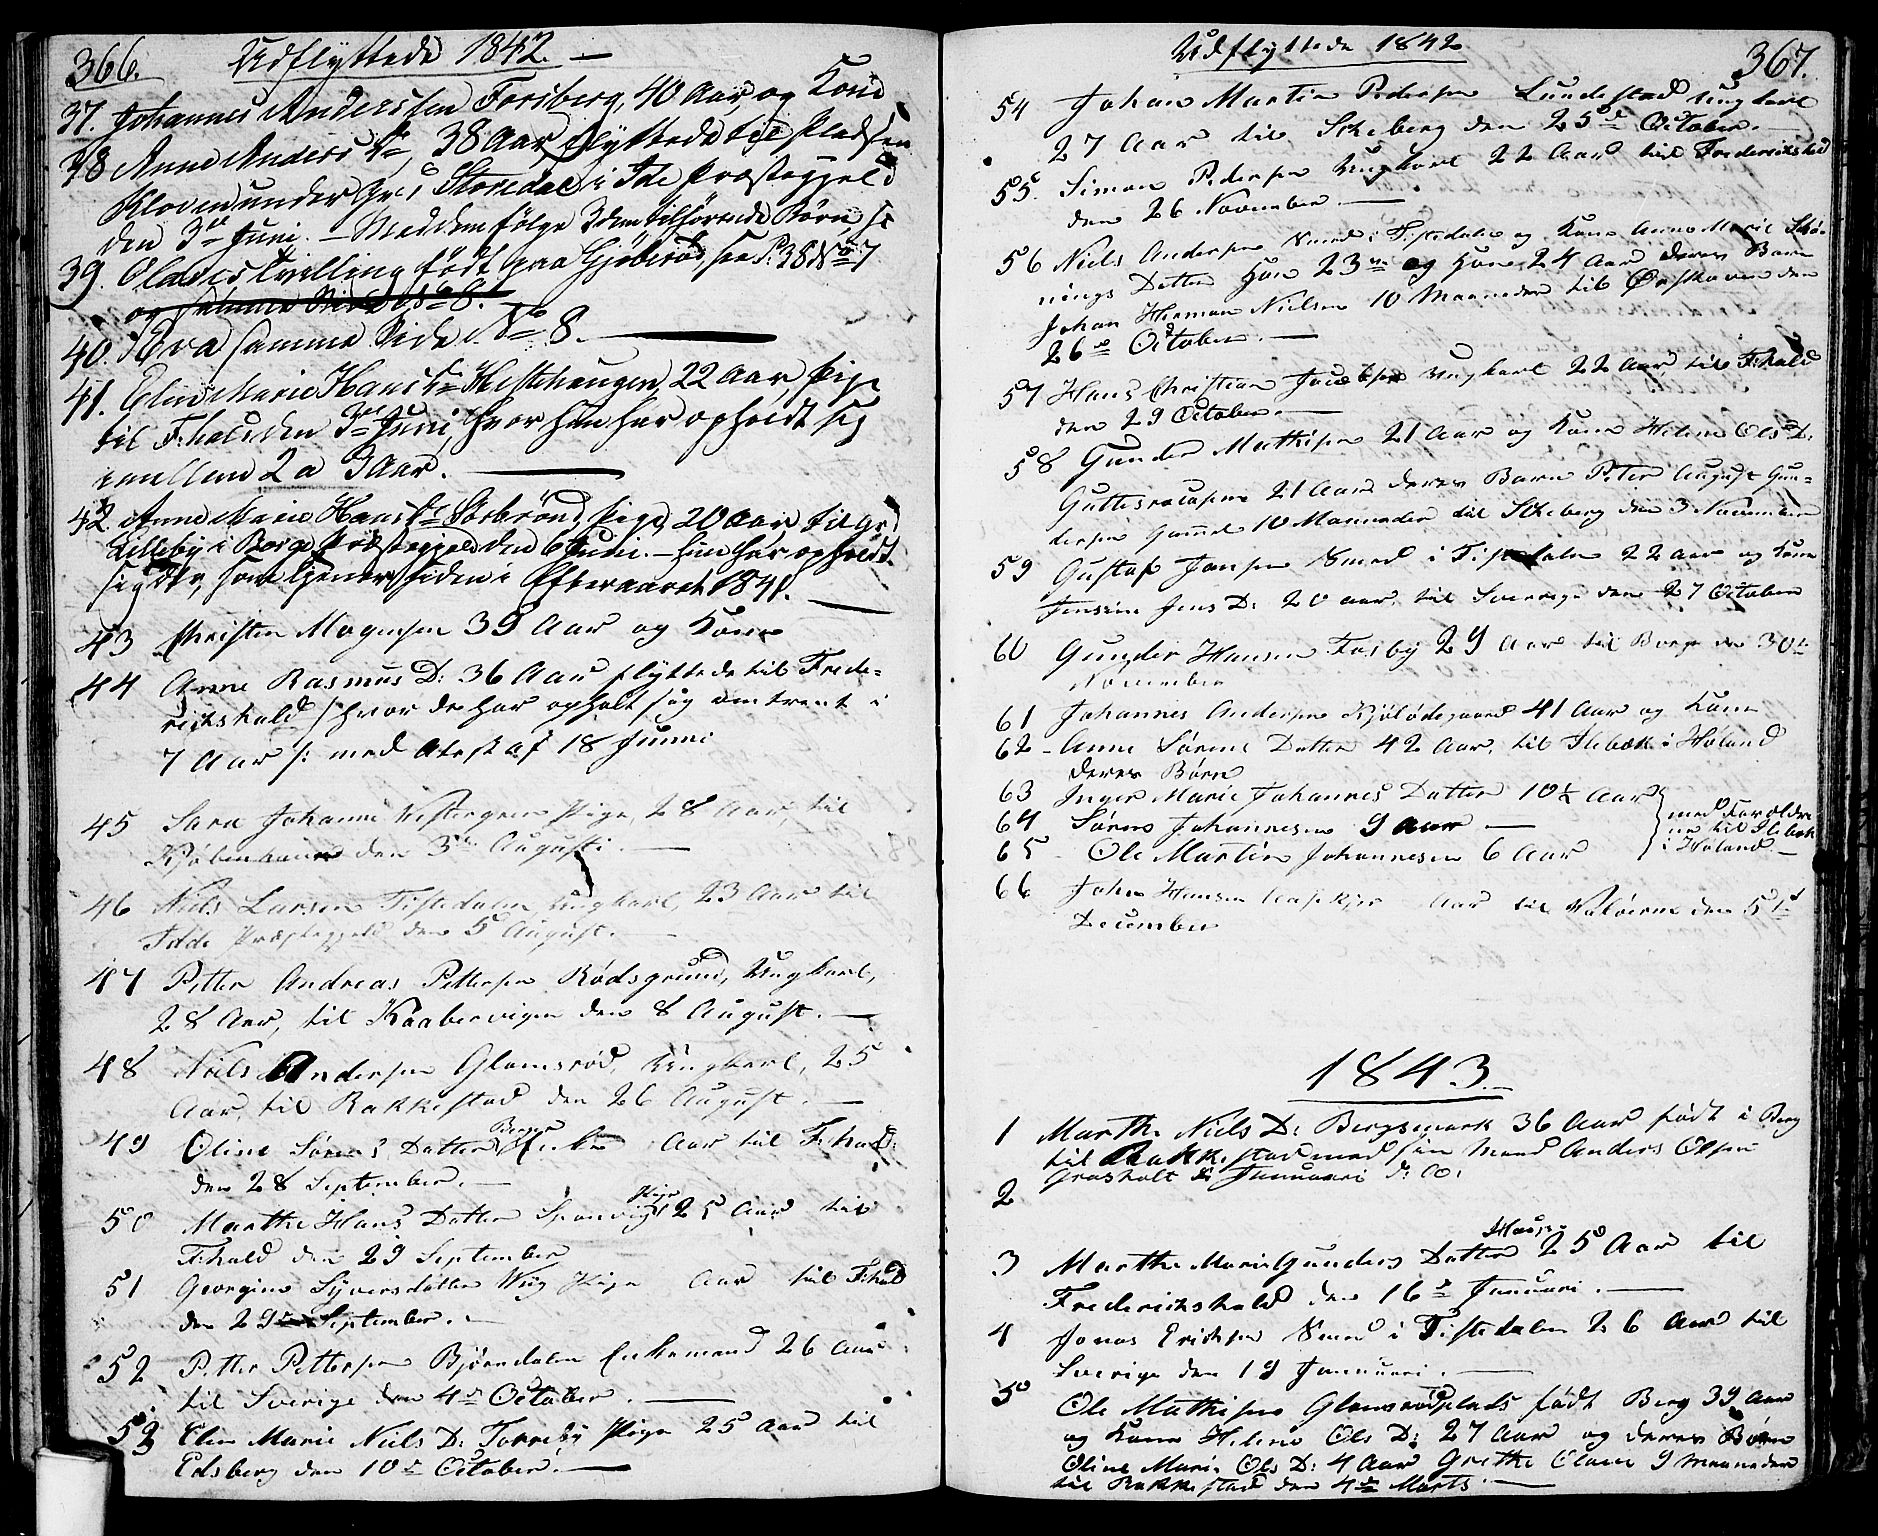 366. Udflyttede 1842. —
37. Johannes Anderssen Forsberg, 40 Aar, og Kone
38 Anne Anders D., 38 Aar, flyttede til Pladsen
Kloven under Gr. Storedal i Ide Præstegjeld
den 3die Juni. — Med dem følge 2 dem tilhørende Børn,
39. Olaves tvilling født paa Gjøberød, see P. 38 No 7
og samme Side No 8.
40. Eva samme Side No 8. —
41. Elen Marie Hans D. Hestehaugen, 22 Aar Pige
til F:hald den 3die Juni, hvor hun har opholdt sig
imellem 2 a 3 Aar. —
42. Anne Marie Hans D. Sorbrønd, Pige, 20 Aar til Grd
Lilleby i Borge Præstegjeld den 6 Juni. — hun har opholdt
sig der, som tjener, siden i Efteraaret 1841. —
43 Christen Mogensen 39 Aar og Kone
44 Anne Rasmus D: 36 Aar flyttede til Frede-
rickshald /: hvor de har opholt sig omtrent i
7 Aar :/ med Atest af 18 Junni
45 Sara Johanne Vestergren Pige, 28 Aar, til
Kjøbenhavn den 3die Augusti. —
46 Niels Larsen Tistedalen Ungkarl, 23 Aar til
Idde Præstegjeld den 5 August. —
47 Petter Andreas Pettersen Rødsgrund, Ungkarl,
28 Aar, til Kaabervigen den 8 August. —
48 Niels Andersen Glomsrød, Ungkarl, 25
Aar, til Rakkestad den 26 August. —
49 Oline Sørens Datter Berger Enke Aar til F:hald
den 28 September. —
50 Marthe Hans Datter Sponvige Pige 25 Aar til
F:hald den 29 September
51 Georgine Syversdatter Wiig Pige Aar til F:hald
den 29de September. —
52 Petter Pettersen Bjørndalen Enkemand 26 Aar
til Sverige den 4de October. —
53 Elen Marie Niels D: Torreby Pige 25 Aar til
Edsberg den 10de October. —
Udflyttede 1842 367.
54 Johan Martin Pedersen Lundestad Ungkarl
27 Aar til Skeberg den 25de October. —
55. Simon Pedersen Ungkarl 22 Aar til Frederikshald
den 26 November. —
56 Niels Andersen Smed i Tistedalen og Kone Anne Marie Skø-
nings Datter Han 23 og Hun 24 Aar deres Barn
Johan Herman Nielsen 10 Maaneder til Ørskoven den
26de October. —
57 Hans Christian Jacobsen Ungkarl 22 Aar til F:hald
den 29 October. —
58 Gunder Mathisen 21 Aar og Kone Helene Ols D:
21 Aar deres Barn Peter August Gun-
dersen Gammel 10 Maaneder til Skeberg den 3 November
59 Gustaf Jansen Smed i Tistedalen 22 Aar og Kone
Jensine Jens D: 20 Aar, til Sverige den 27 October
60 Gunder Hansen Fosby 29 Aar til Borge den 30te
November
61 Johannes Andersen Kjølødegaard 41 Aar og Kone
62 - Anne Sørens Datter 42 Aar, til Ilebæk i Høland
deres Børn
63 Inger Marie Johannes Datter 10½ Aar
64 Søren Johannesen 9 Aar —
65 Ole Martin Johannesen 6 Aar
med Forældre
ne til Ilebæk
i Høland —
66 John Hansen Aar til Valøerne den 51te
December
1843. —
1 Marthe Niels D: Bergsmark 36 Aar født i Berg
til Rakkestad med sin Mand Anders Olsen
2 Grasholt d: Januari d: A:
3 Marthe Marie Gunders Datter 25 Aar til
Frederickshald den 16de Januari. —
4 Jonas Ericksen Smed i Tistedalen 26 Aar til
Sverige den 19 Januari. —
5 Ole Mathisen Glomsrødplads født Berg 39 Aar
og Kone Helene Ols D: 27 Aar og deres Børn
Oline Marie Ols D: 4 Aar Grethe Olava 9 Maaneder
til Rakkestad den 4de Marts. —